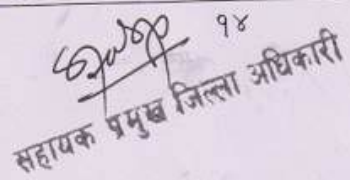 १४
सहायक प्रमुख जिल्ला अधिकारी